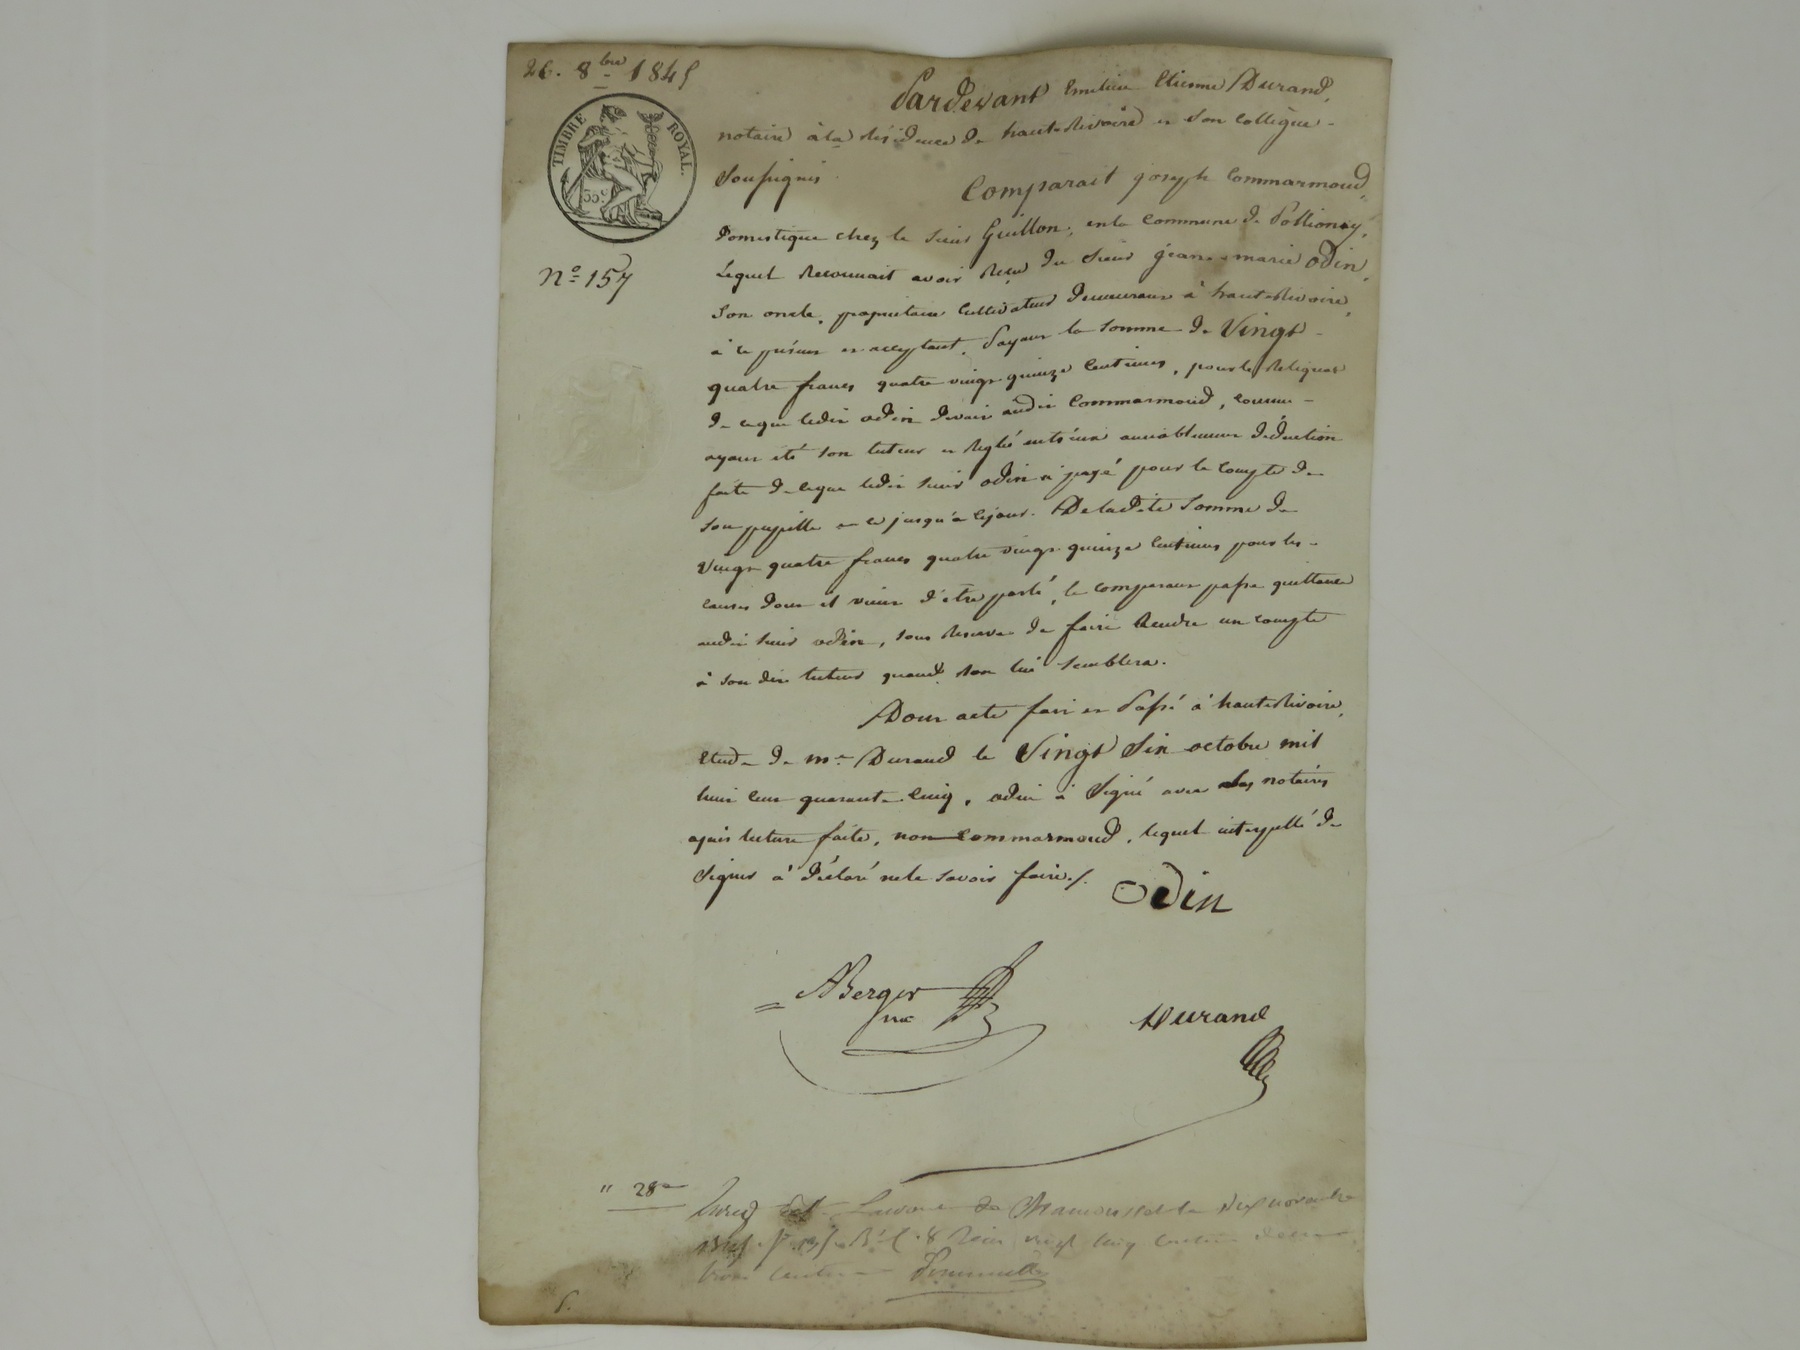 26. 8bre 1845
TIMBRE ROYAL.
35c.
No 157
Pardevant Emilien Etienne Durand,
notaire à la résidence de haute-Rivoire et son collègue
soussignés.
Comparait joseph Commarmond,
domestique chez le sieur Guillon, en la commune de Pollionay,
Lequel Reconnait avoir Reçu du sieur jean-marie odin,
son oncle, propriétaire cultivateur demeurant à haute-Rivoire,
à ce présent et acceptant, Payant la somme de Vingt
quatre francs quatre vingt quinze centimes, pour le Reliquat
de ce que ledit odin devait audit Commarmond, comme
ayant été son tuteur et Réglé entr'eux amiablement déduction
faite de ce que ledit sieur odin a payé pour le compte de
son pupille et ce jusqu'à ce jour. De ladite somme de
Vingt quatre francs quatre vingt quinze centimes pour les
causes dont il vient d'être parlé, le comparant passe quittance
audit sieur odin, sous Réserve de faire Rendre un compte
à son dit tuteur quand bon lui semblera.
Dont acte fait et Passé à haute-Rivoire,
étude de me Durand le Vingt Six octobre mil
huit cent quarante cinq, odin a Signé avec les notaires
après lecture faite, non Commarmond, lequel interpellé de
Signer a déclaré ne le savoir faire./.
Odin
ABerger
nre
Durand
" 28
Enreg St Laurent de Chamousset le dix novembre
1845. f. Reçu vingt cinq centimes
trois centimes